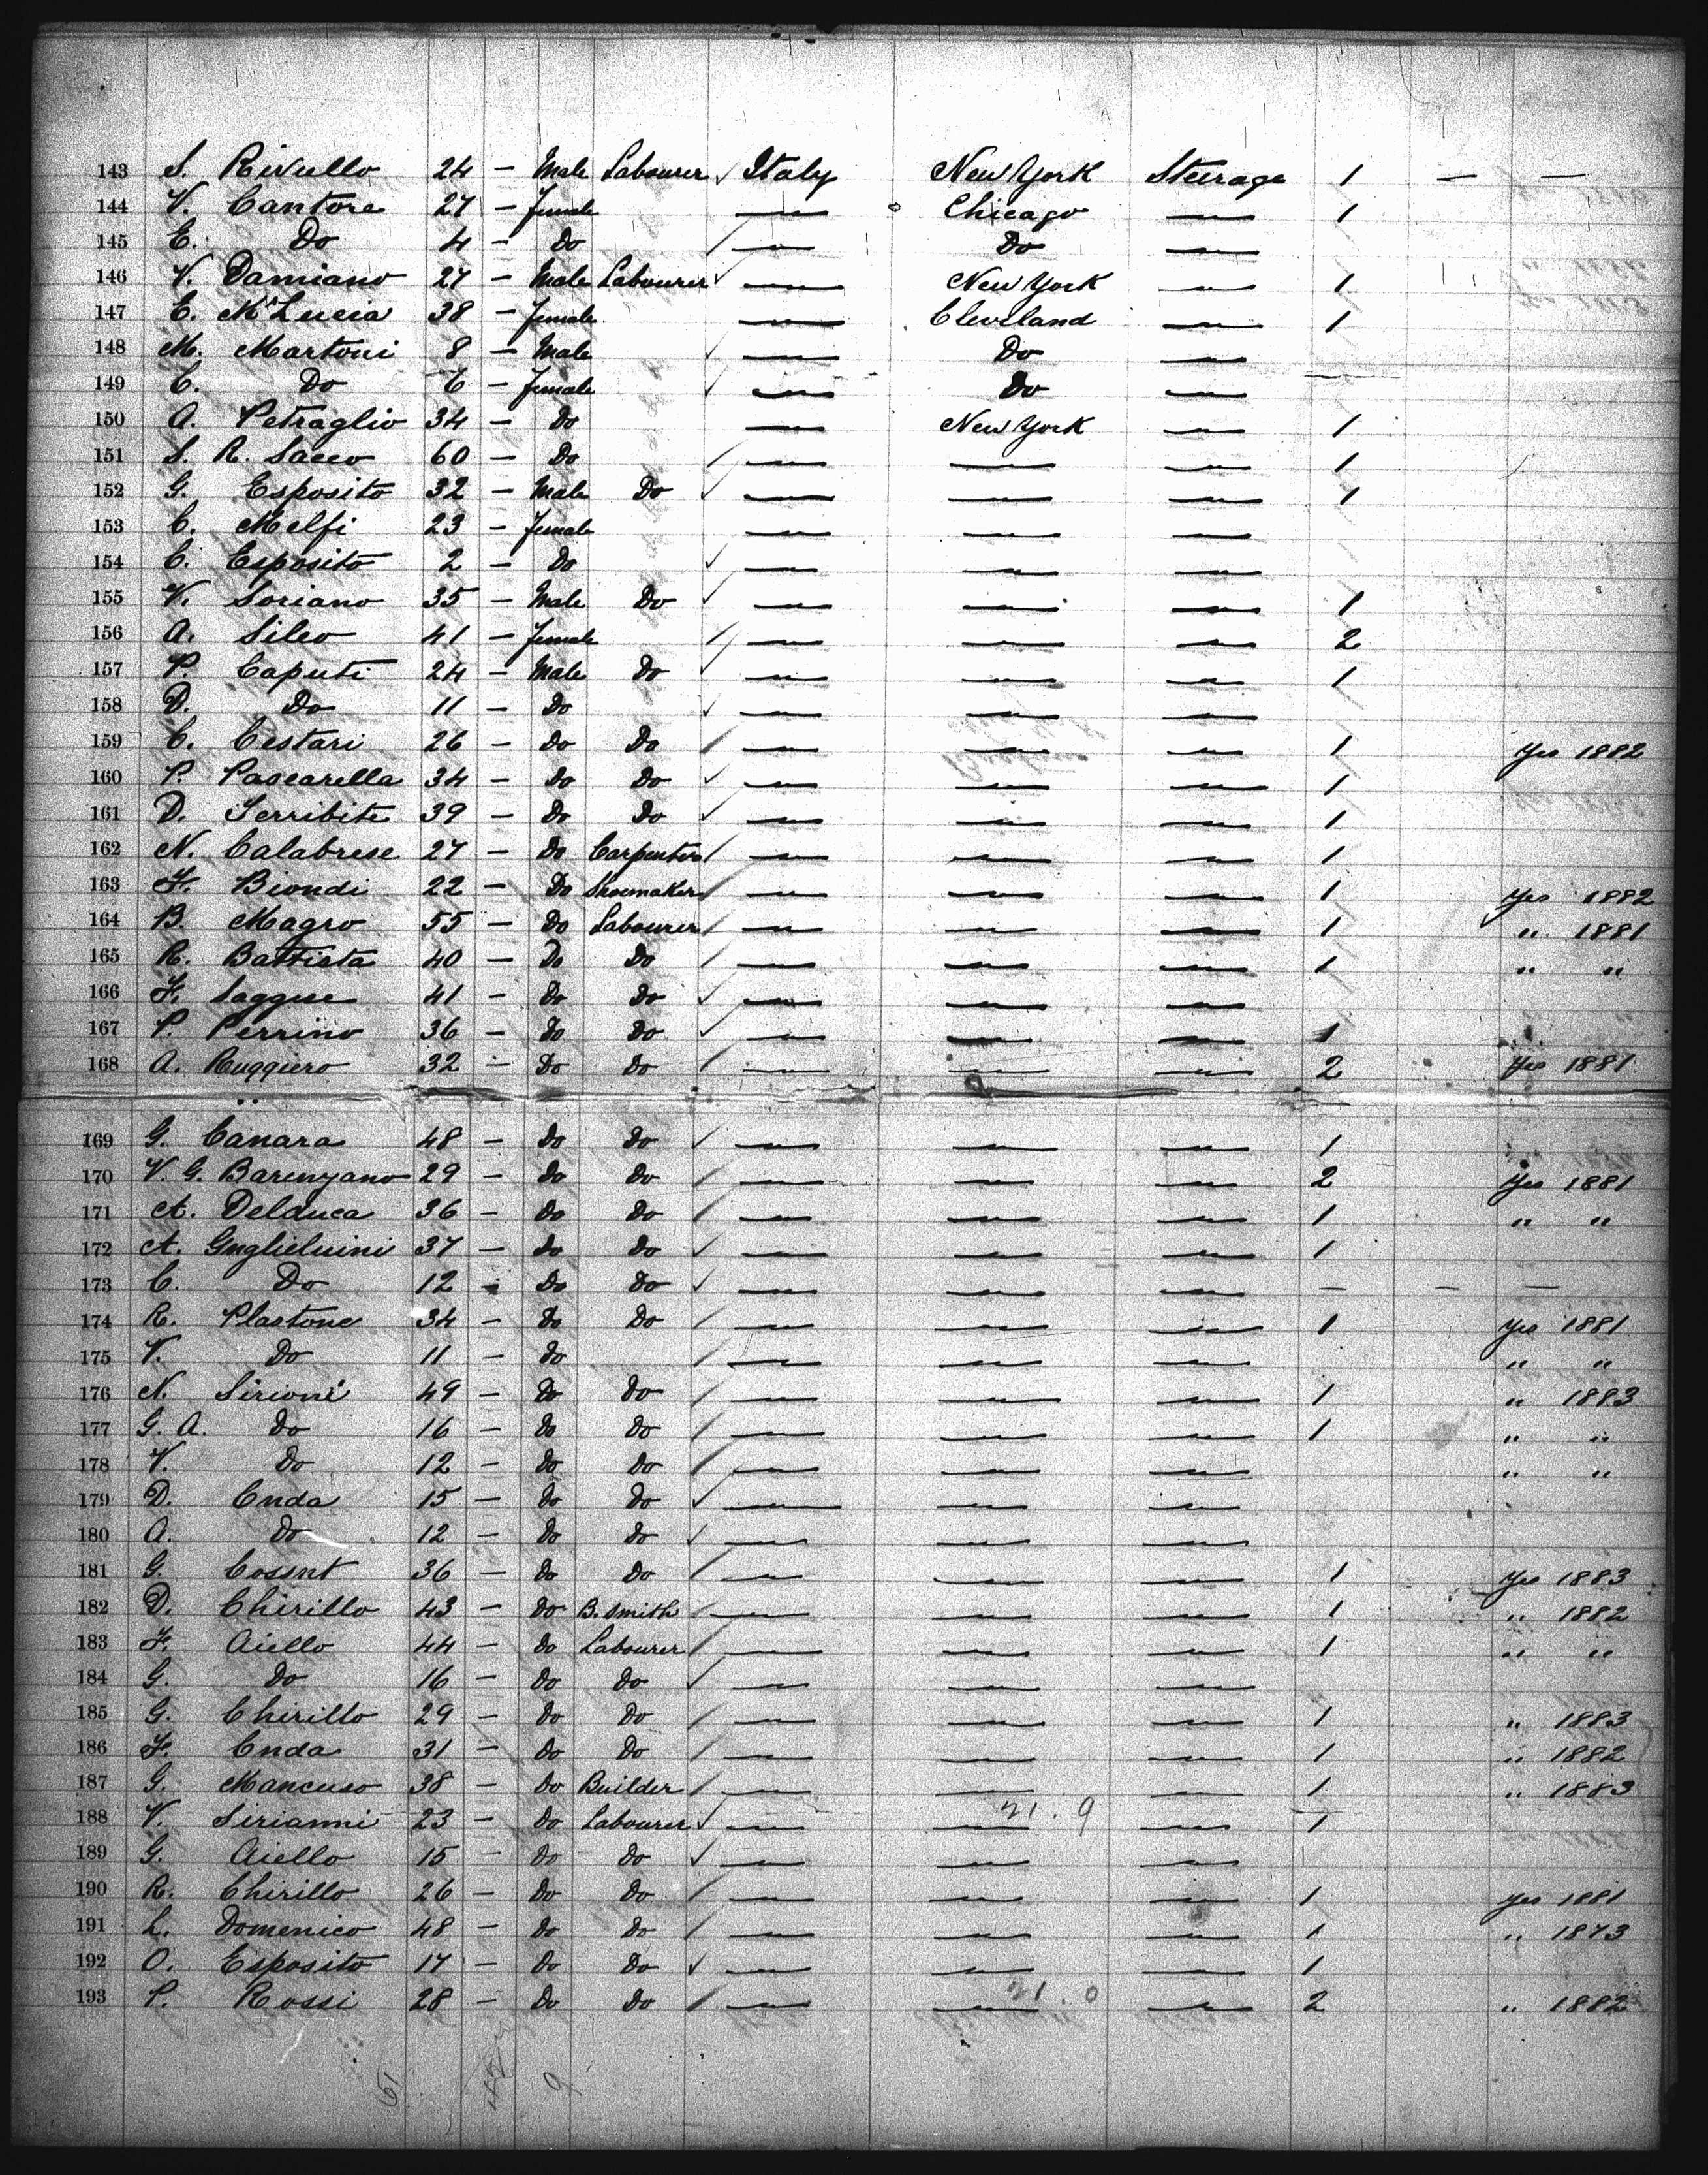 143 S. Rivello 24 – Male Labourer ✓ Italy New York Steerage 1 — —
144 V. Cantore 27 – Female — Chicago — 1
145 E. Do 4 – Do / — Do —
146 V. Damiano 27 – Male Labourer ✓ — New York — 1
147 E. McLucia 38 – Female — Cleveland — 1
148 M. Martoni 8 – Male ✓ — Do —
149 C. Do 6 – Female ✓ — Do —
150 A. Petraglio 34 – Do — New York — 1
151 S. R. Sacco 60 – Do / — — — 1
152 G. Esposito 32 – Male Do ✓ — — — 1
153 C. Melfi 23 – Female — — —
154 C. Esposito 2 – Do ✓ — — —
155 V. Soriano 35 – Male Do ✓ — — — 1
156 A. Sileo 41 – Female / — — — 2
157 P. Caputi 24 – Male Do ✓ — — — 1
158 D. Do 11 – Do ✓ — — —
159 C. Cestari 26 – Do Do / — — — 1 Yes 1882
160 P. Pascarella 34 – Do Do ✓ — — — 1
161 D. Terribite 39 – Do Do ✓ — — — 1
162 N. Calabrese 27 – Do Carpenter / — — — 1
163 F. Biondi 22 – Do Shoemaker / — — — 1 Yes 1882
164 B. Magro 55 – Do Labourer / — — — 1 " 1881
165 R. Battista 40 – Do Do / — — — 1 " "
166 F. Saggese 41 – Do Do ✓ — — —
167 P. Perrino 36 – Do Do ✓ — — — 1
168 A. Ruggiero 32 – Do Do / — — — 2 Yes 1881
169 G. Canara 48 – Do Do ✓ — — — 1
170 V. G. Barenzano 29 – Do Do / — — — 2 Yes 1881
171 A. Delauca 36 – Do Do / — — — 1 " "
172 A. Guglielmini 37 – Do Do ✓ — — — 1
173 C. Do 12 – Do Do ✓ — — — — — —
174 R. Plastone 34 – Do Do / — — — 1 Yes 1881
175 V. Do 11 – Do / — — — " "
176 N. Sirioni 49 – Do Do / — — — 1 " 1883
177 G. A. Do 16 – Do Do / — — — 1 " "
178 V. Do 12 – Do Do / — — — " "
179 D. Cnda 15 – Do Do ✓ — — —
180 A. Do 12 – Do Do ✓ — — —
181 G. Cossnt 36 – Do Do / — — — 1 Yes 1883
182 D. Chirillo 43 – Do B. Smith / — — — 1 " 1882
183 F. Aiello 44 – Do Labourer / — — — 1 " "
184 G. Do 16 – Do Do ✓ — — —
185 G. Chirillo 29 – Do Do / — — — 1 " 1883
186 F. Cnda 31 – Do Do / — — — 1 " 1882
187 G. Mancuso 38 – Do Builder / — — — 1 " 1883
188 V. Sirianni 23 – Do Labourer ✓ — 21. 9 — 1
189 G. Aiello 15 – Do Do ✓ — — —
190 R. Chirillo 26 – Do Do / — — — 1 Yes 1881
191 L. Domenico 48 – Do Do / — — — 1 " 1873
192 O. Esposito 17 – Do Do ✓ — — — 1
193 P. Rossi 28 – Do Do / — 21. 0 — 2 " 1882